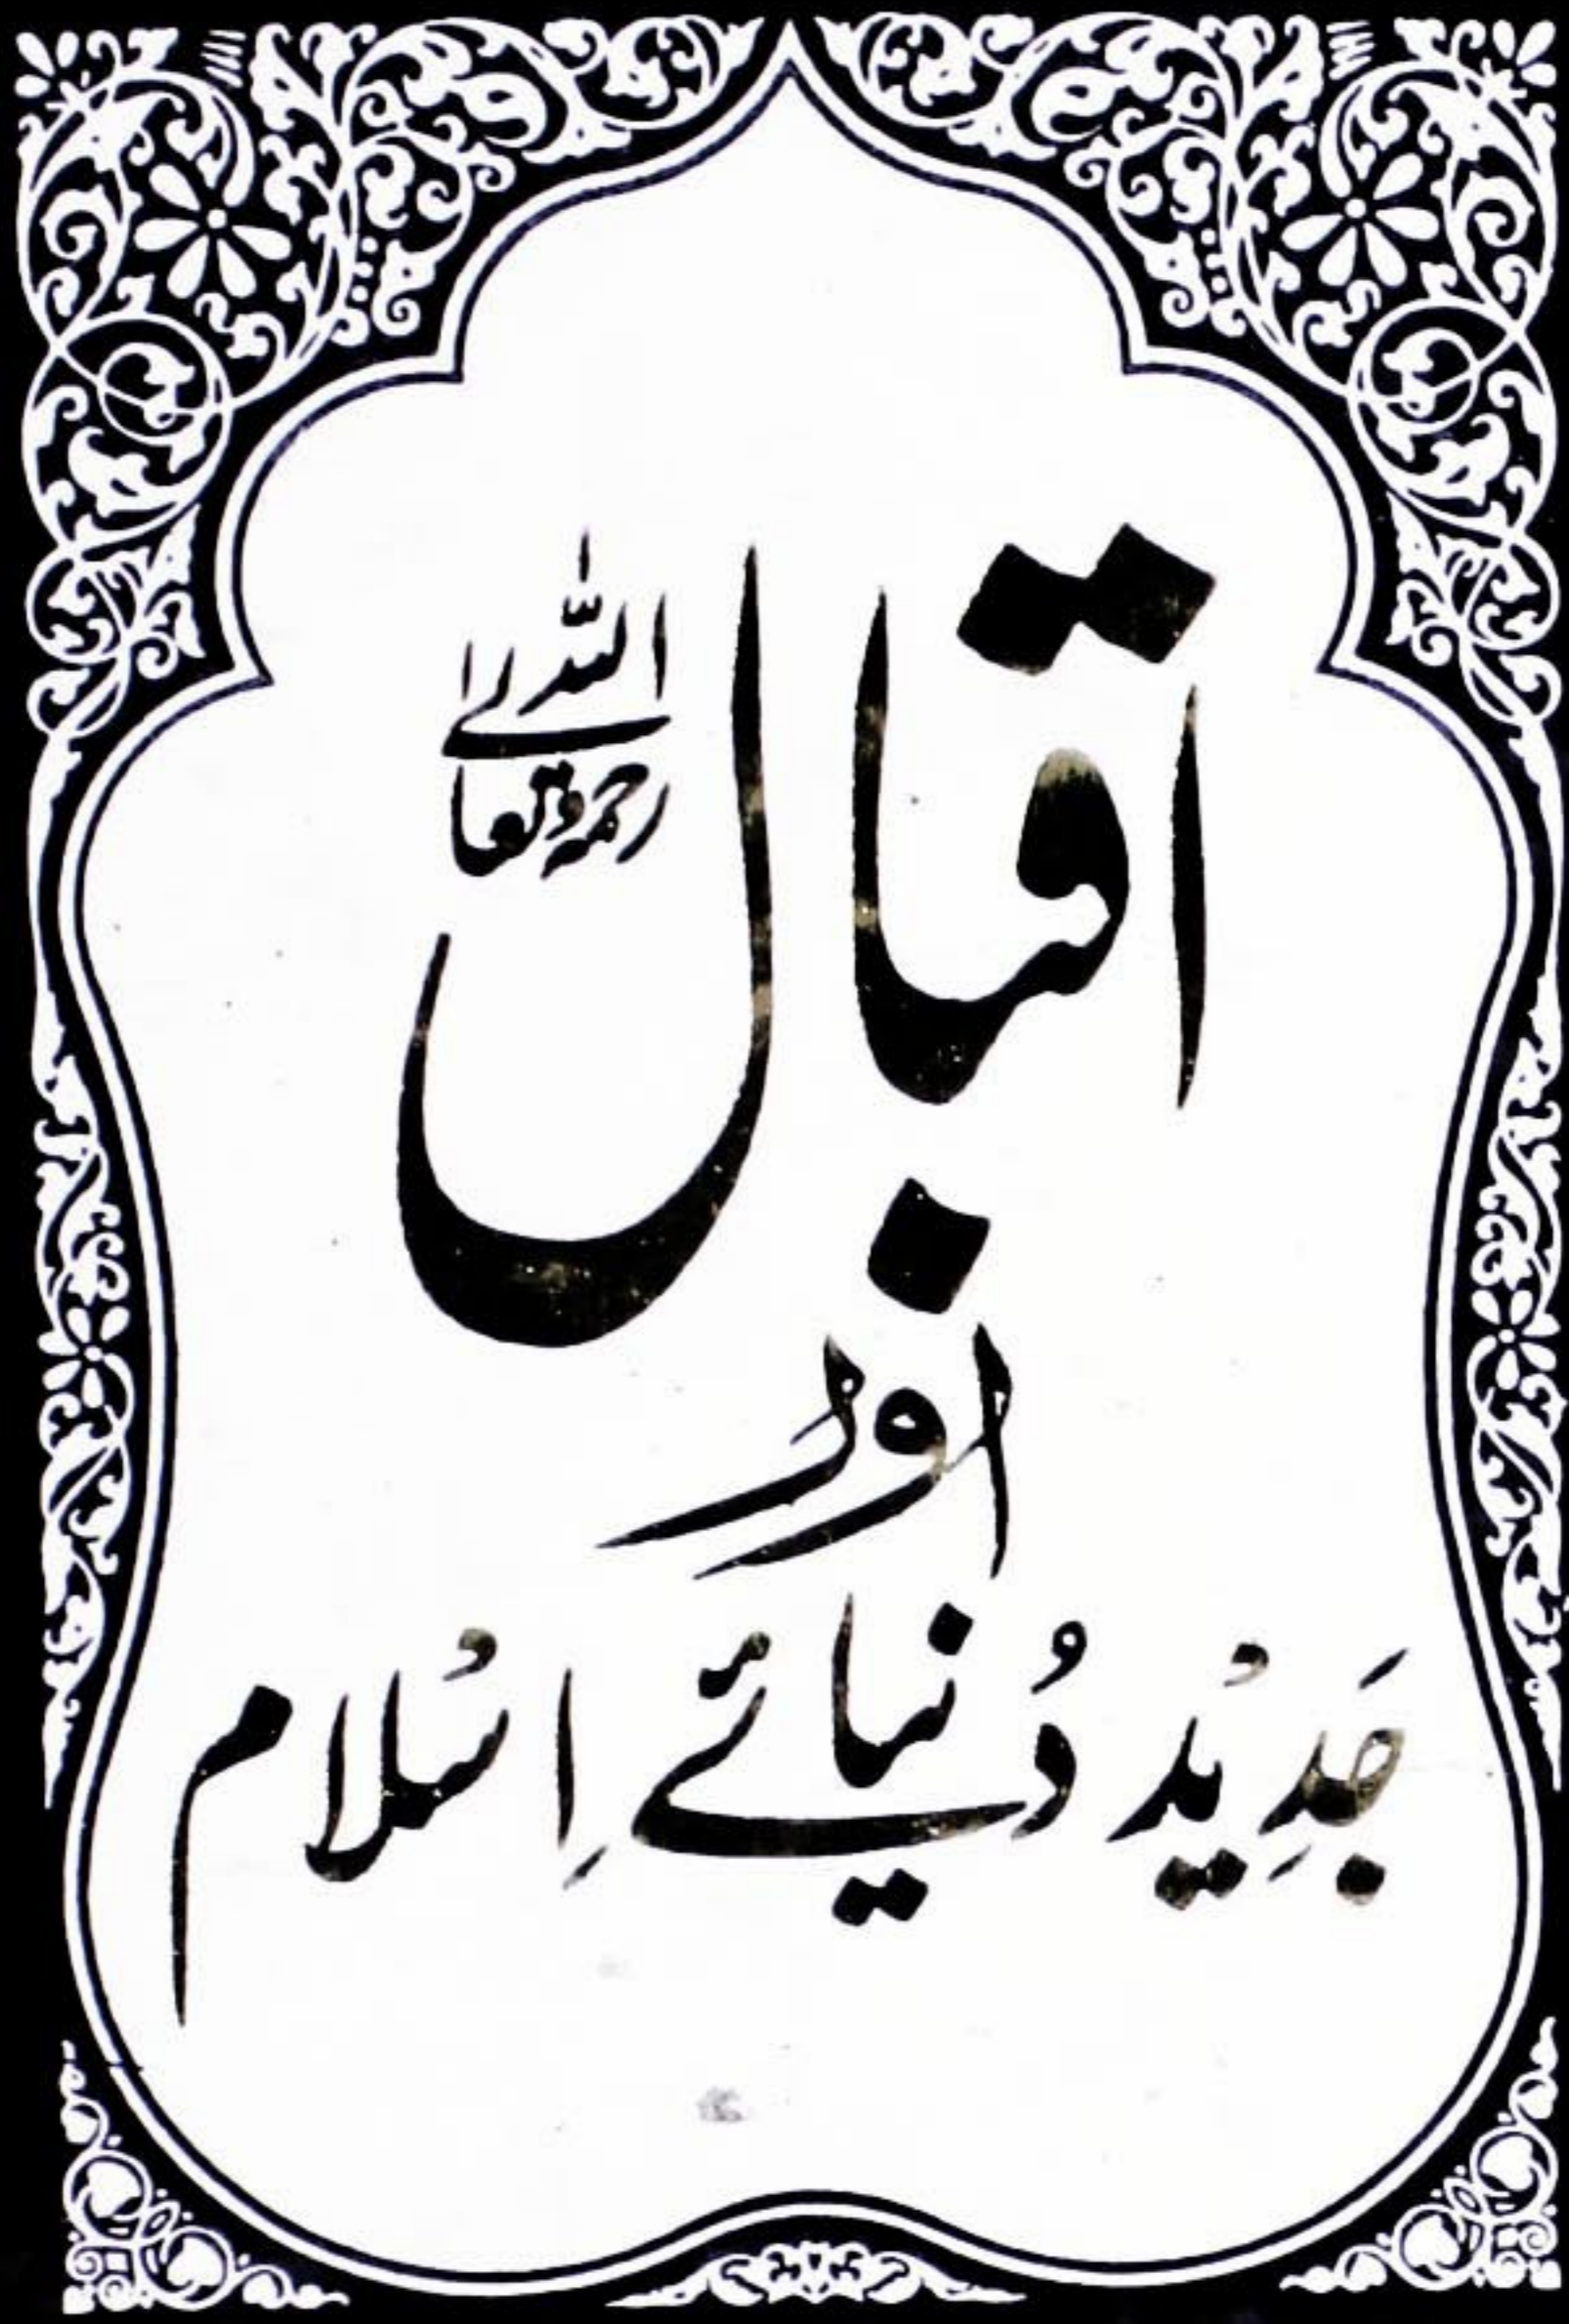 اقبال رحمۃ اللہ تعالےٰ
اور
جَدِیْد دُنیائے اِسْلام